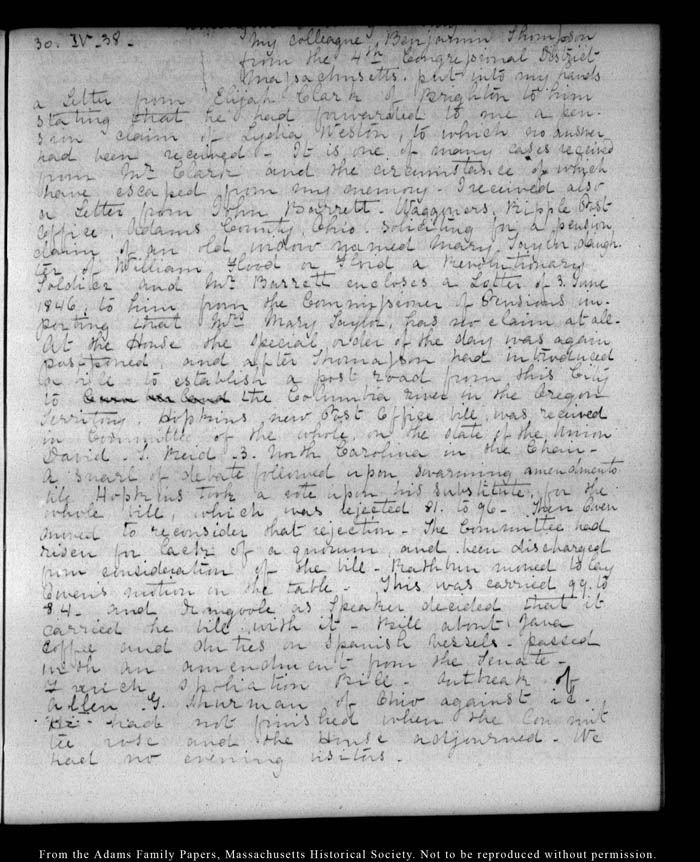 30. IV-38-
My colleague Benjamin Thompson
from the 4th Congressional District
Massachusetts, put into my hands
a Letter from Elijah Clark of Brighton to him
stating that he had forwarded to me a pen-
sion claim of Lydia Weston, to which no answer
had been received - It is one of many cases received
from Mr Clark and the circumstance of which
have escaped from my memory - I received also
a Letter from John Barrett - Waggoners, Ripple Post
Office, Adams County, Ohio. Soliciting for a pension,
claim of an old widow named Mary Taylor, daugh-
ter of William Flood or Flud a Revolutionary
Soldier and Mr Barrett encloses a Letter of 3. June
1846, to him from the Commissioner of Pensions im-
porting that Mrs Mary Taylor, has no claim at all-
At the House the special order of the day was again
postponed, and after Thompson had introduced
a bill to establish a post road from this City
to the Columbia river in the Oregon
Territory, Hopkins new Post Office bill, was received
in Committee of the whole, on the state of the Union
David - S. Reid - 3. North Carolina in the Chair -
A snarl of debate followed upon swarming amendments
till Hopkins took a vote upon his substitute, for the
whole bill, which was rejected 81. to 96 - Then Owen
moved to reconsider that rejection - The Committee had
risen for lack of a quorum, and been discharged
from consideration of the bill - Rathbun moved to lay
Owen's motion on the table - This was carried 99. to
84 - and Dromgoole as Speaker decided that it
carried the bill with it - Bill about Java
Coffee and duties on Spanish vessels - passed
with an amendment from the Senate -
French Spoliation Bill - outbreak of
Allen G. Thurman of Ohio against it -
He had not finished when the Commit-
tee rose and the House adjourned - We
had no evening visitors -
From the Adams Family Papers, Massachusetts Historical Society. Not to be reproduced without permission.